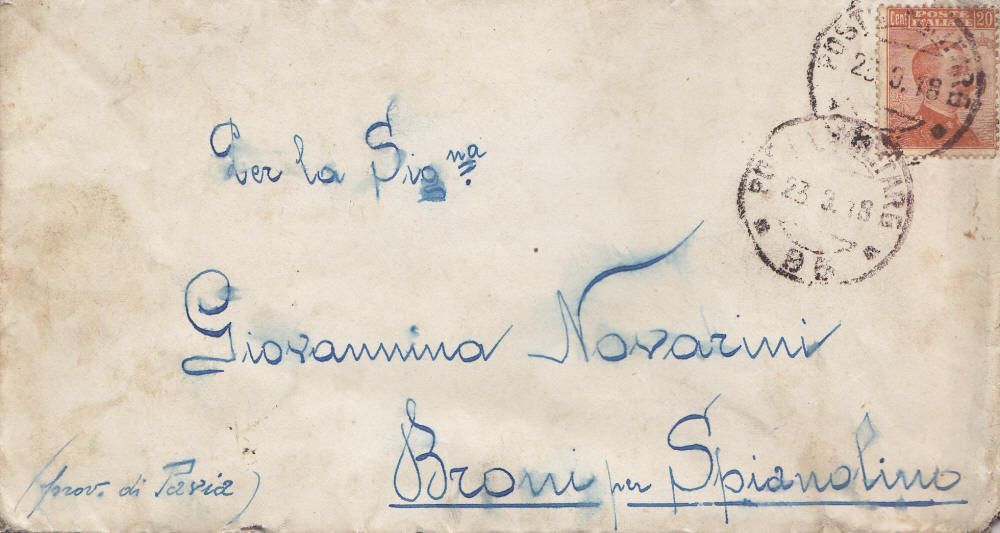 Cent POSTE ITALIANE 20
23.3.18
POSTA MILITARE
23 3.18
Per la Sig.na
Giovannina Novarini
Broni per Spianolino
(prov. di Pavia)